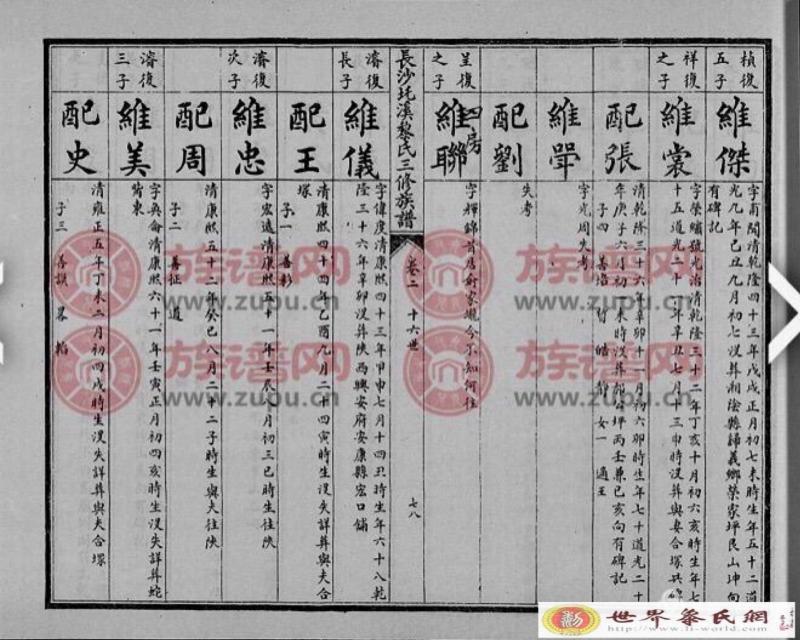 楨復
五子
維傑
字甫閣清乾隆四十三年戊戌正月初七未時生年五十二道
光九年己丑九月初七沒葬湘陰縣歸義鄉榮家坪艮山坤向
有碑記
祥復
之子
維裳
字榮繡號光治清乾隆三十二年丁亥十月初六亥時生年七
十五道光二十一年辛丑七月十三申時沒葬與妻合塚共碑
配張
清乾隆三十六年辛卯十一月初六卯時生年七十道光二十
年庚子六月初一未時沒葬
坪丙壬兼巳亥向有碑記
子四
女一
適王
維
字光周失考
配劉
失考
呈復
之子
四房
維聯
字輝錦
今不知何往
長沙
溪黎氏三修族譜
卷二
十六世
七八
濬復
長子
維儀
字偉度清康熙四十三年甲申七月十四丑時生年六十八乾
隆三十六年辛卯沒葬陝西興安府安康縣宏口鋪
配王
清康熙四十四年乙酉九月二十四寅時生沒失詳葬與夫合
塚
子一
善彰
濬復
次子
維忠
字宏遠清康熙五十一年壬辰
月初三巳時生往陝
配周
清康熙五十二年癸巳八月二十二子時生與夫往陝
子二
善征
道
濬復
三子
維美
字奐侖清康熙六十一年壬寅正月初四亥時生沒失詳葬蛇
嘴東
配史
清雍正五年丁未二月初四戌時生沒失詳葬與夫合塚
子三
善謨
畧
韜
族谱网
www.zupu.cn
族谱网
www.zupu.cn
族谱网
www.zupu.cn
族谱网
www.zupu.cn
世界黎氏網
http://www.li-world.com